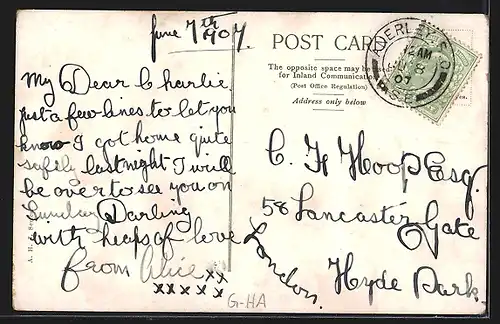 June 7th 1907
My Dear Charlie
just a few lines to let you
know I got home quite
safely last night I will
be over to see you on
Sunday Darling
with heaps of love
from Alice xx
xxxxx
POST CARD
The opposite space may be used
for Inland Communication
(Post Office Regulation)
Address only below
ANERLEY S.O
AM
JU 8
07
S.E
C. H Hoop Esq.
58 Lancaster Gate
Hyde Park.
London.
G-HA